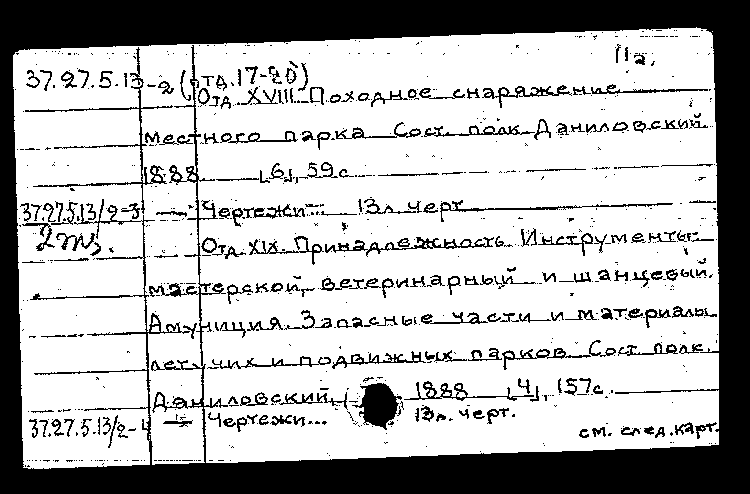 11а.
37.27.5.13-2 (отд. 17-20)
Отд XVIII Походное снаряжение
местного парка Сост. полк Даниловский
1888 [6], 59с
37.27.5.13/2-3 — Чертежи... 13л черт
2 экз.
Отд XIX. Принадлежность Инструменты:
мастерской, ветеринарный и шанцевый.
Амуниция. Запасные части и материалы
летучих и подвижных парков Сост полк.
Даниловский, 1888 [4], 157с.
37.27.5.13/2-4 — Чертежи... 13л. черт.
см. след. карт.